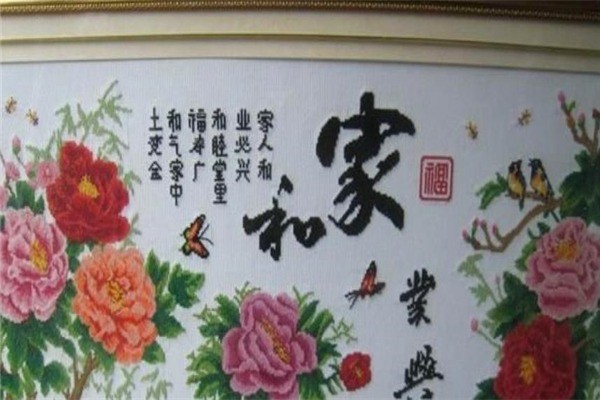 福
家和
業興
家人和
业必兴
和睦堂里
福寿广
和气家中
土变金